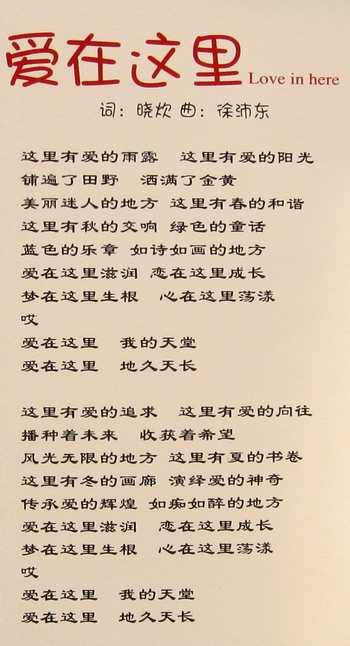 爱在这里 Love in here
词：晓炊 曲：徐沛东
这里有爱的雨露 这里有爱的阳光
铺遍了田野 洒满了金黄
美丽迷人的地方 这里有春的和谐
这里有秋的交响 绿色的童话
蓝色的乐章 如诗如画的地方
爱在这里滋润 恋在这里成长
梦在这里生根 心在这里荡漾
哎
爱在这里 我的天堂
爱在这里 地久天长
这里有爱的追求 这里有爱的向往
播种着未来 收获着希望
风光无限的地方 这里有夏的书卷
这里有冬的画廊 演绎爱的神奇
传承爱的辉煌 如痴如醉的地方
爱在这里滋润 恋在这里成长
梦在这里生根 心在这里荡漾
哎
爱在这里 我的天堂
爱在这里 地久天长